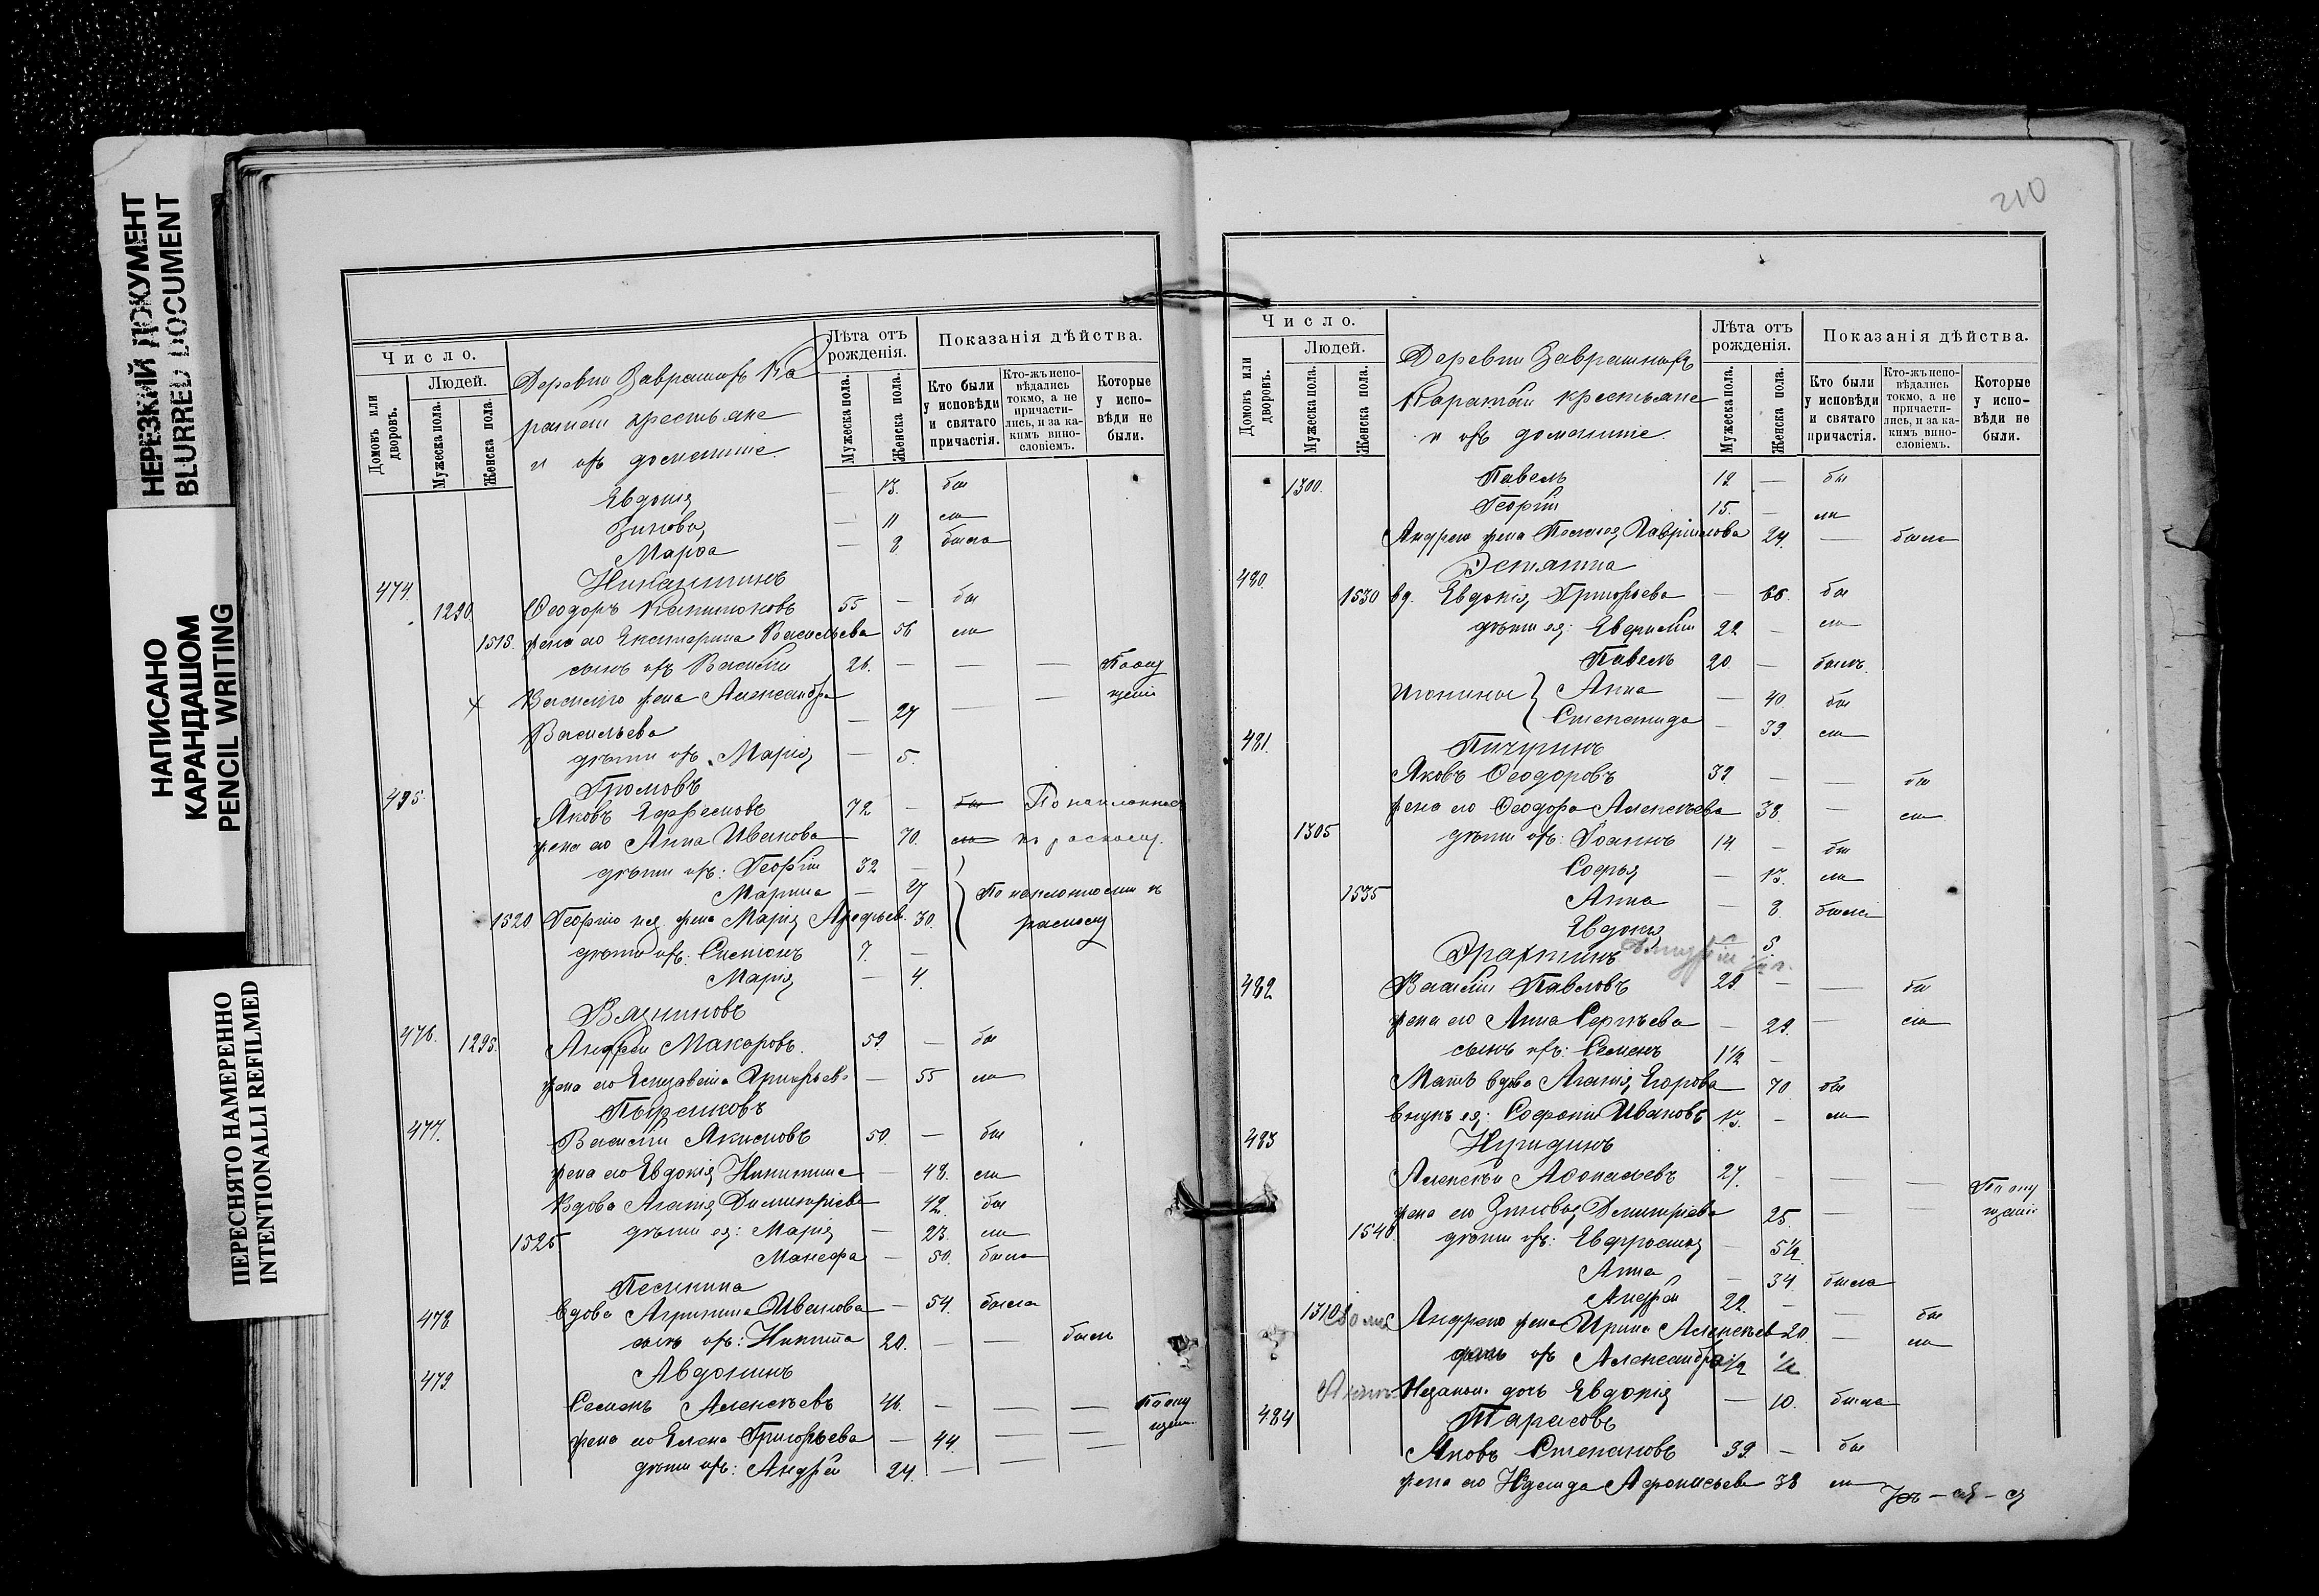 НЕРЕЗКИЙ ДОКУМЕНТ
BLURRED DOCUMENT
НАПИСАНО
КАРАНДАШОМ
PENCIL WRITING
ПЕРЕСНЯТО НАМЕРЕННО
INTENTIONALLI REFILMED
Число.
Людей.
Домовъ или дворовъ.
Мужеска пола.
Женска пола.
Деревни
крестьяне
и ихъ домашніе.
Лѣта отъ рожденія.
Мужеска пола.
Женска пола.
Показанія дѣйства.
Кто были у исповѣди и святаго причастія.
Кто-жъ исповѣдались токмо, а не причастились, и за какимъ винословіемъ.
Которые у исповѣди не были.
Евдокія — 13. бы
Зиновія — 11 ли
Марѳа — 8 была
474. Никашинъ
1290 Ѳеодоръ 55 — бы
1515. жена его Екатерина Васильева 56 ли
сынъ ихъ Василій 26. — — — По опу
Василія жена Александра — щенію
Васильева — 27 —
дѣти ихъ. Марія — 5.
475. Громовъ
Яковъ 72 — бы По наклонности
жена его Анна Иванова 70. ли къ расколу.
дѣти ихъ: Георгій 32 —
Марина — 27 По наклонности къ
1520 Георгія жена Марія 30. расколу
дѣти ихъ: Симеонъ 7. —
Марія — 4.
Вязниковъ
476. 1295. Андрей Макаровъ. 59. — бы
жена его Елизавета Григорьев. — 55 ли
477. Василій Якимовъ 50. — бы
жена его Евдокія Никитина — 48. ли
Вдова Агаѳія Димитріева 42. бы
1525 дѣти ея: Марія — 23. ли
— 50. была
478 вдова Агрипина Иванова — 54. была
сынъ ихъ: Никита 20. — — былъ
479. Авдонинъ
Семенъ Алексѣевъ 46. — — — По опу
щен.
жена его Елена Григорьева — 44. — —
дѣти ихъ: Андрей 24. — — —
210
Число.
Людей.
Домовъ или дворовъ.
Мужеска пола.
Женска пола.
Деревни
крестьяне
и ихъ домашніе.
Лѣта отъ рожденія.
Мужеска пола.
Женска пола.
Показанія дѣйства.
Кто были у исповѣди и святаго причастія.
Кто-жъ исповѣдались токмо, а не причастились, и за какимъ винословіемъ.
Которые у исповѣди не были.
1300. Павелъ 19. — бы
Георгій 15. — ли
Андрея жена Пелагея Гавріилова 24. — была
480.
1530 вд. Евдокія Григорьева — 66. бы
дѣти ея: 22 — ли
Павелъ 20 — былъ.
Анна — 40. бы
Степанида — 39. ли
481. Пичугинъ
Яковъ Ѳеодоровъ 39 — — бы
жена его Ѳеодора Алексѣева 38. — ли
1305 дѣти ихъ: Іоаннъ 14. — бы
Софья — 13. ли
1535 Анна — 8. была
Евдокія — 5
482 Василій Павловъ 29. — — бы
жена его Анна Сергѣева — 29. — ли
сынъ ихъ: Семенъ 1½ —
Мать вдова Агаѳія Егорова 70 бы
внукъ ея: Софоній Ивановъ 13. — ли
483
Алексѣй Аѳонасьевъ 27. — — — По опу
жена его Зиновья Димитріева 25. — — щенію
1540 дѣти ихъ: — 5½
Анна — 34. была
Андрей 22. — — бы
1310 Андрея жена Ирина Алексѣев. 20. — ли
ихъ Александра
Незакон. дочь Евдокія — 10. была
484 Тарасовъ
Яковъ Степановъ 39. — бы
жена его Аѳонасьева 38 ли